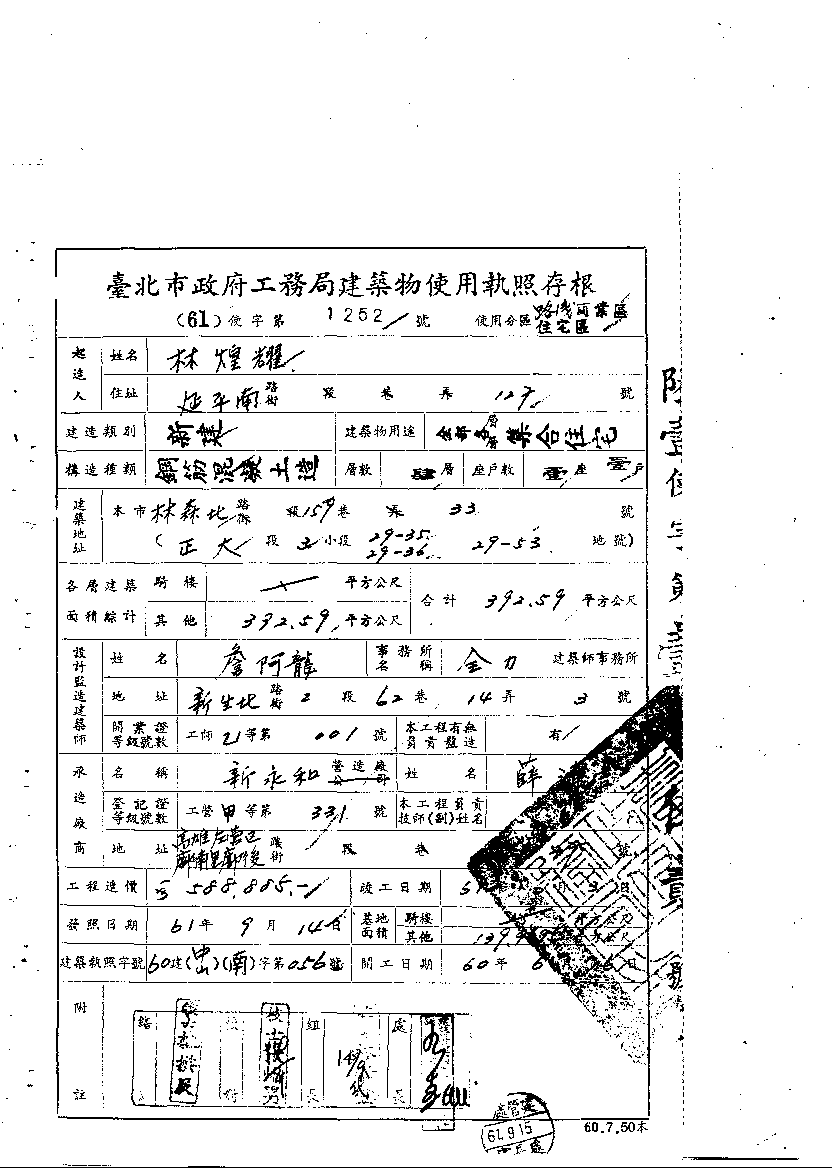 臺北市政府工務局建築物使用執照存根
(61)使字第 1252 號 使用分區 路線商業區 住宅區
起造人 姓名 林煌耀
住址 延平南 路街 段 巷 弄 127 號
建造類別 新建 建築物用途 全部各層 集合住宅
構造種類 鋼筋混凝土造 層數 肆層 座戶數 壹座 壹戶
建築地址 本市 林森北 路街 段 159 巷 弄 33 號
(正大 段 3 小段 29-35 29-36 29-53 地號)
各層建築面積綜計 騎樓 平方公尺 合計 392.59 平方公尺
其他 392.59 平方公尺
設計監造建築師 姓名 詹阿龍 事務所名稱 全力 建築師事務所
地址 新生北 路街 2 段 62 巷 14 弄 3 號
開業證等級號數 工師 乙等第 001 號 本工程有無負責監造 有
承造廠商 名稱 新永和 營造廠公司 姓名 薛
登記證等級號數 工營 甲等第 331 號 本工程負責技師(副)姓名
地址 高雄左營區 路街 段 巷 號
工程造價 588,885.- 竣工日期 月 日
發照日期 61年 9月 14日 基地面積 騎樓 平方公尺
其他 平方公尺
建築執照字號 60建(中山)(南)字第056號 開工日期 60年 6月 日
附註
組長 處長
61.9.15
60.7.50本